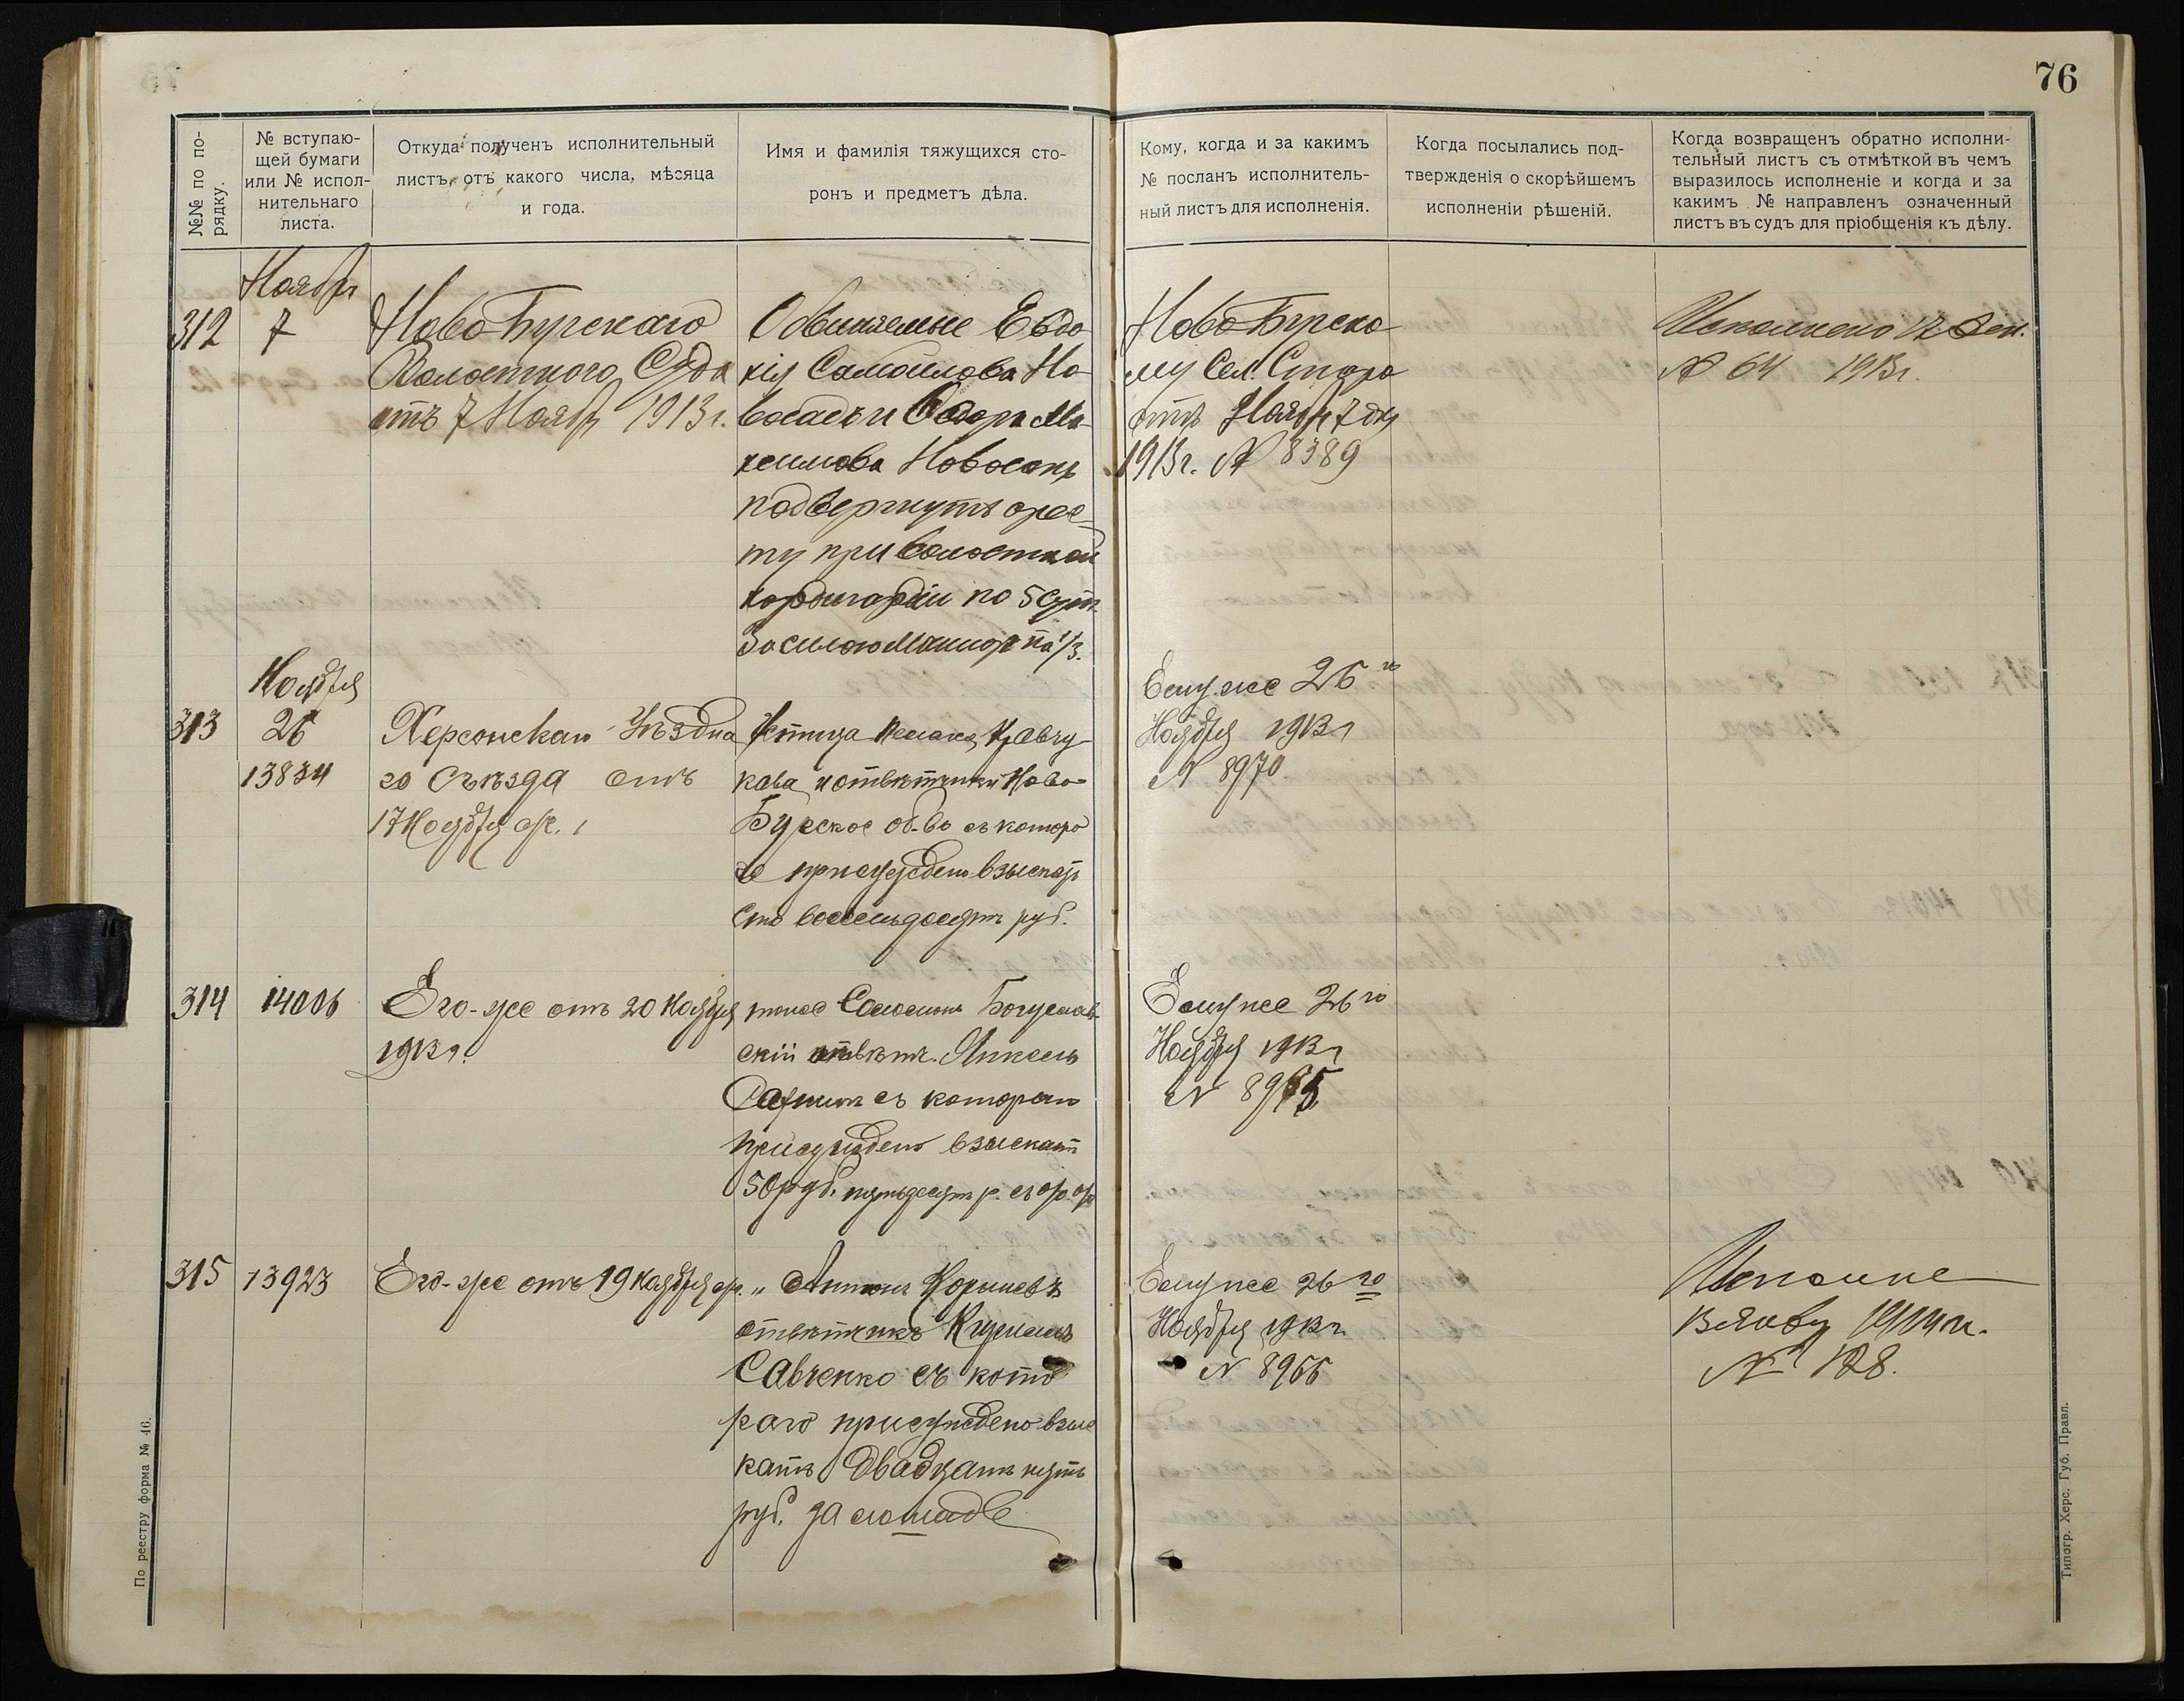 76
№№ по по-
рядку.
№ вступаю-
щей бумаги
или № испол-
нительнаго
листа.
Откуда полученъ исполнительный
листъ, отъ какого числа, мѣсяца
и года.
Имя и фамилія тяжущихся сто-
ронъ и предметъ дѣла.
Кому, когда и за какимъ
№ посланъ исполнитель-
ный листъ для исполненія.
Когда посылались под-
твержденія о скорѣйшемъ
исполненіи рѣшеній.
Когда возвращенъ обратно исполни-
тельный листъ съ отмѣткой въ чемъ
выразилось исполненіе и когда и за
какимъ № направленъ означенный
листъ въ судъ для пріобщенія къ дѣлу.
Ноября
312
7
Ново-Бугскаго
Волостного Суда
отъ 7 Ноября 1913 г.
Обвиняемые Евдо-
кія Самойлова Но-
восадъ и Ѳедора Ма-
ксимова
подвергнуть арес-
ту при волостной
кордигардіи по 5 сут.
Ново-Бугско-
му Сел. Старо
отъ Ноября 7 дн
1913 г. № 8389
Исполнено 17 Дек.
№ 64 1913 г.
Ноября
313
26
13834
Херсонскаго Уѣздна
го Съѣзда отъ
17 Ноября с/г.
Истица
кова и отвѣтчики Ново-
Бугское об-во съ которо
го присуждено взыскать
сто восемьдесятъ руб.
Ему же 26 го
Ноября 1913 г
№ 8970
314
14006
Его-же отъ 20 Ноября
1913 г.
тоже Соломонъ Богуслав-
скій отвѣтч. Янкель
съ котораго
присуждено взыскать
50 руб. пятьдесятъ р. съ
Ему же 26 го
Ноября 1913 г
№
315
13923
Его-же отъ 19 Ноября с/г.
" Антонъ Корнievъ
отвѣтчикъ
Савченко съ кото
раго присуждено взыс
кать Двадцать пять
руб. за лошадь
Ему же 26 го
Ноября 1913 г
№ 8966
Исполне
1914 г.
№ 128.
По реестру форма № 46.
Типогр. Херс. Губ. Правл.